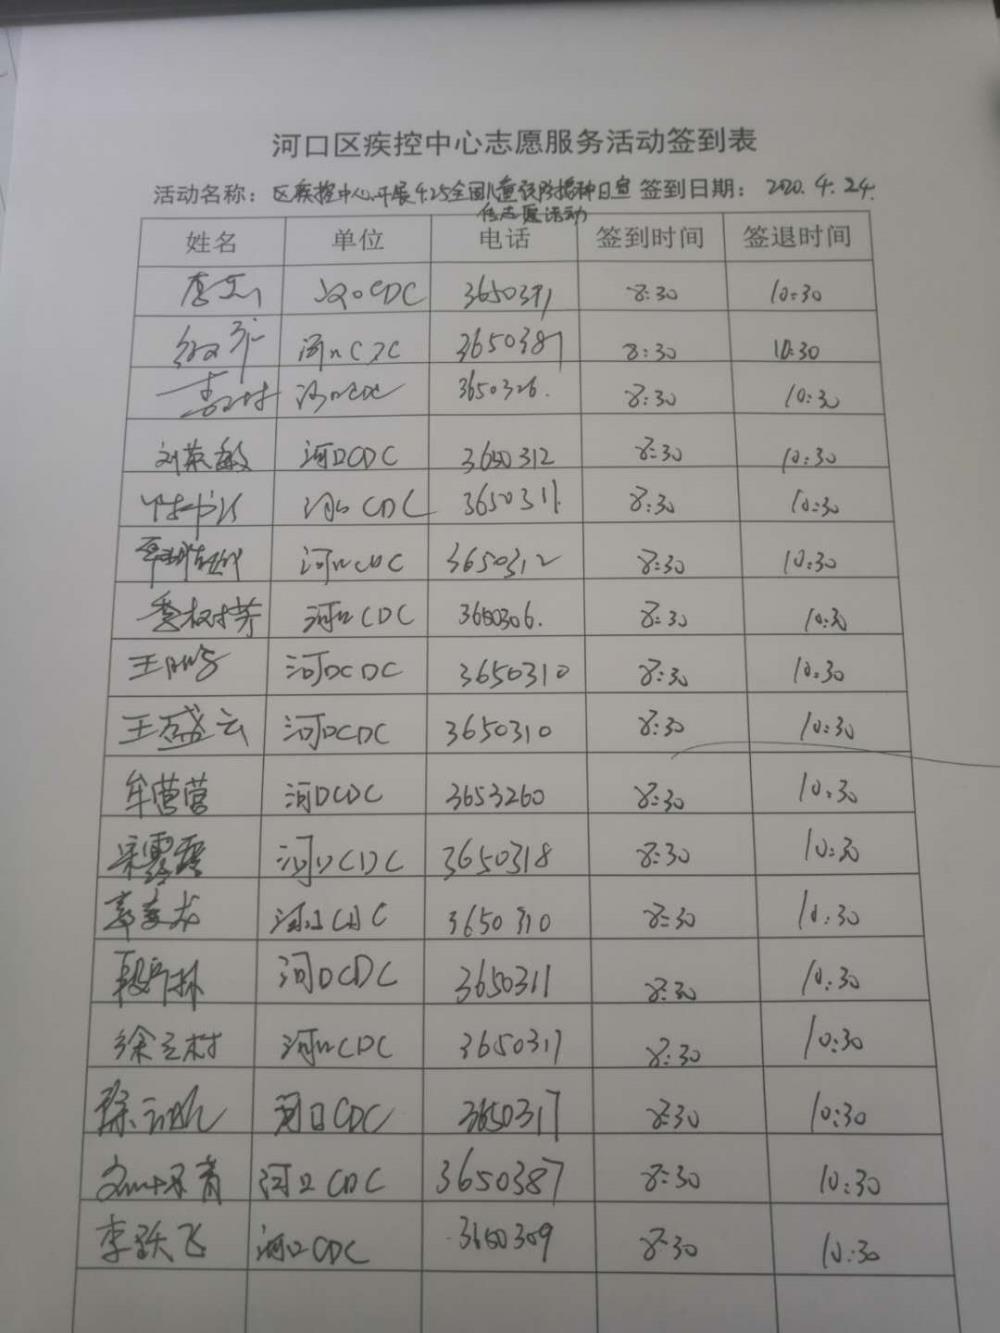 河口区疾控中心志愿服务活动签到表
活动名称：区疾控中心开展4.25全国儿童预防接种日宣 签到日期：2020.4.24.
传志愿活动
姓名 单位 电话 签到时间 签退时间
CDC 8:30 10:30
3650387 8:30 10:30
3650326. 8:30 10:30
刘英敏 河口CDC 3650312 8:30 10:30
河口CDC 3650311 8:30 10:30
河口CDC 3650312 8:30 10:30
河口CDC 3650306. 8:30 10:30
河口CDC 3650310 8:30 10:30
王盛云 河口CDC 3650310 8:30 10:30
牟营营 河口CDC 3653260 8:30 10:30
宋露露 河口CDC 3650318 8:30 10:30
河口CDC 3650310 8:30 10:30
河口CDC 3650311 8:30 10:30
徐立村 河口CDC 3650317 8:30 10:30
河口CDC 3650317 8:30 10:30
河口CDC 3650387 8:30 10:30
李跃飞 河口CDC 3650309 8:30 10:30